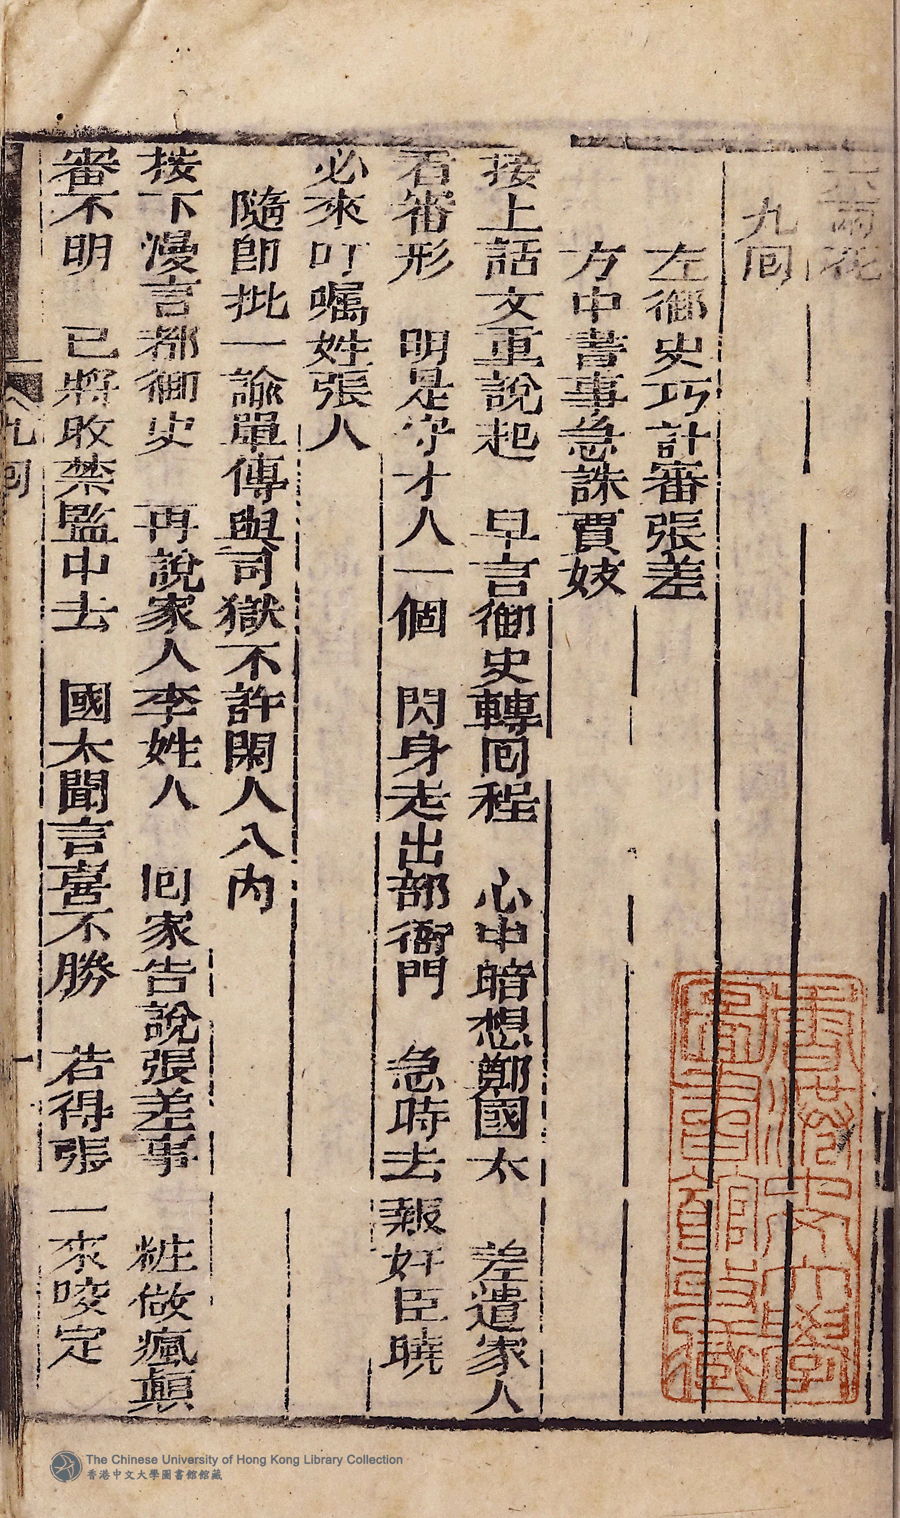 天雨花
九囘
左御史巧計審張差
方中書事急誅賈妓
接上話文重說起　早言御史轉囘程　心中暗想鄭國太　差遣家人
看審形　明是守才人一個　閃身走出部衙門　急時去報奸臣曉
必來叮嘱姓張人
隨即批一諭單傳與司獄不許閑人八內
按下漫言都御史　再說家人李姓人　囘家告說張差事　粧做瘋顛
審不明　已將收禁監中去　國太聞言喜不勝　若得張一來咬定
九囘
一
香港中文大學圖書館藏
The Chinese University of Hong Kong Library Collection
香港中文大學圖書館館藏